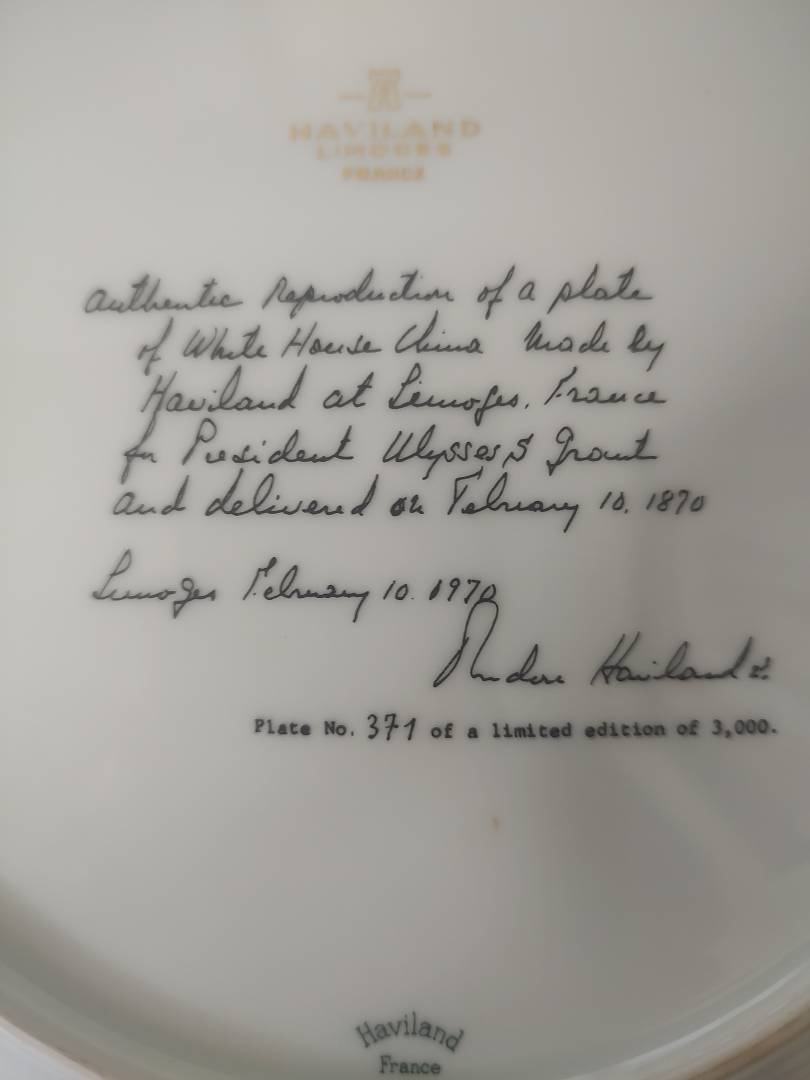 HAVILAND
LIMOGES
FRANCE
authentic Reproduction of a plate
of White House China Made by
Haviland at Limoges. France
for President Ulysses S Grant
and delivered on February 10. 1870
Limoges February 10. 1970
Haviland
Plate No. 371 of a limited edition of 3,000.
Haviland
France